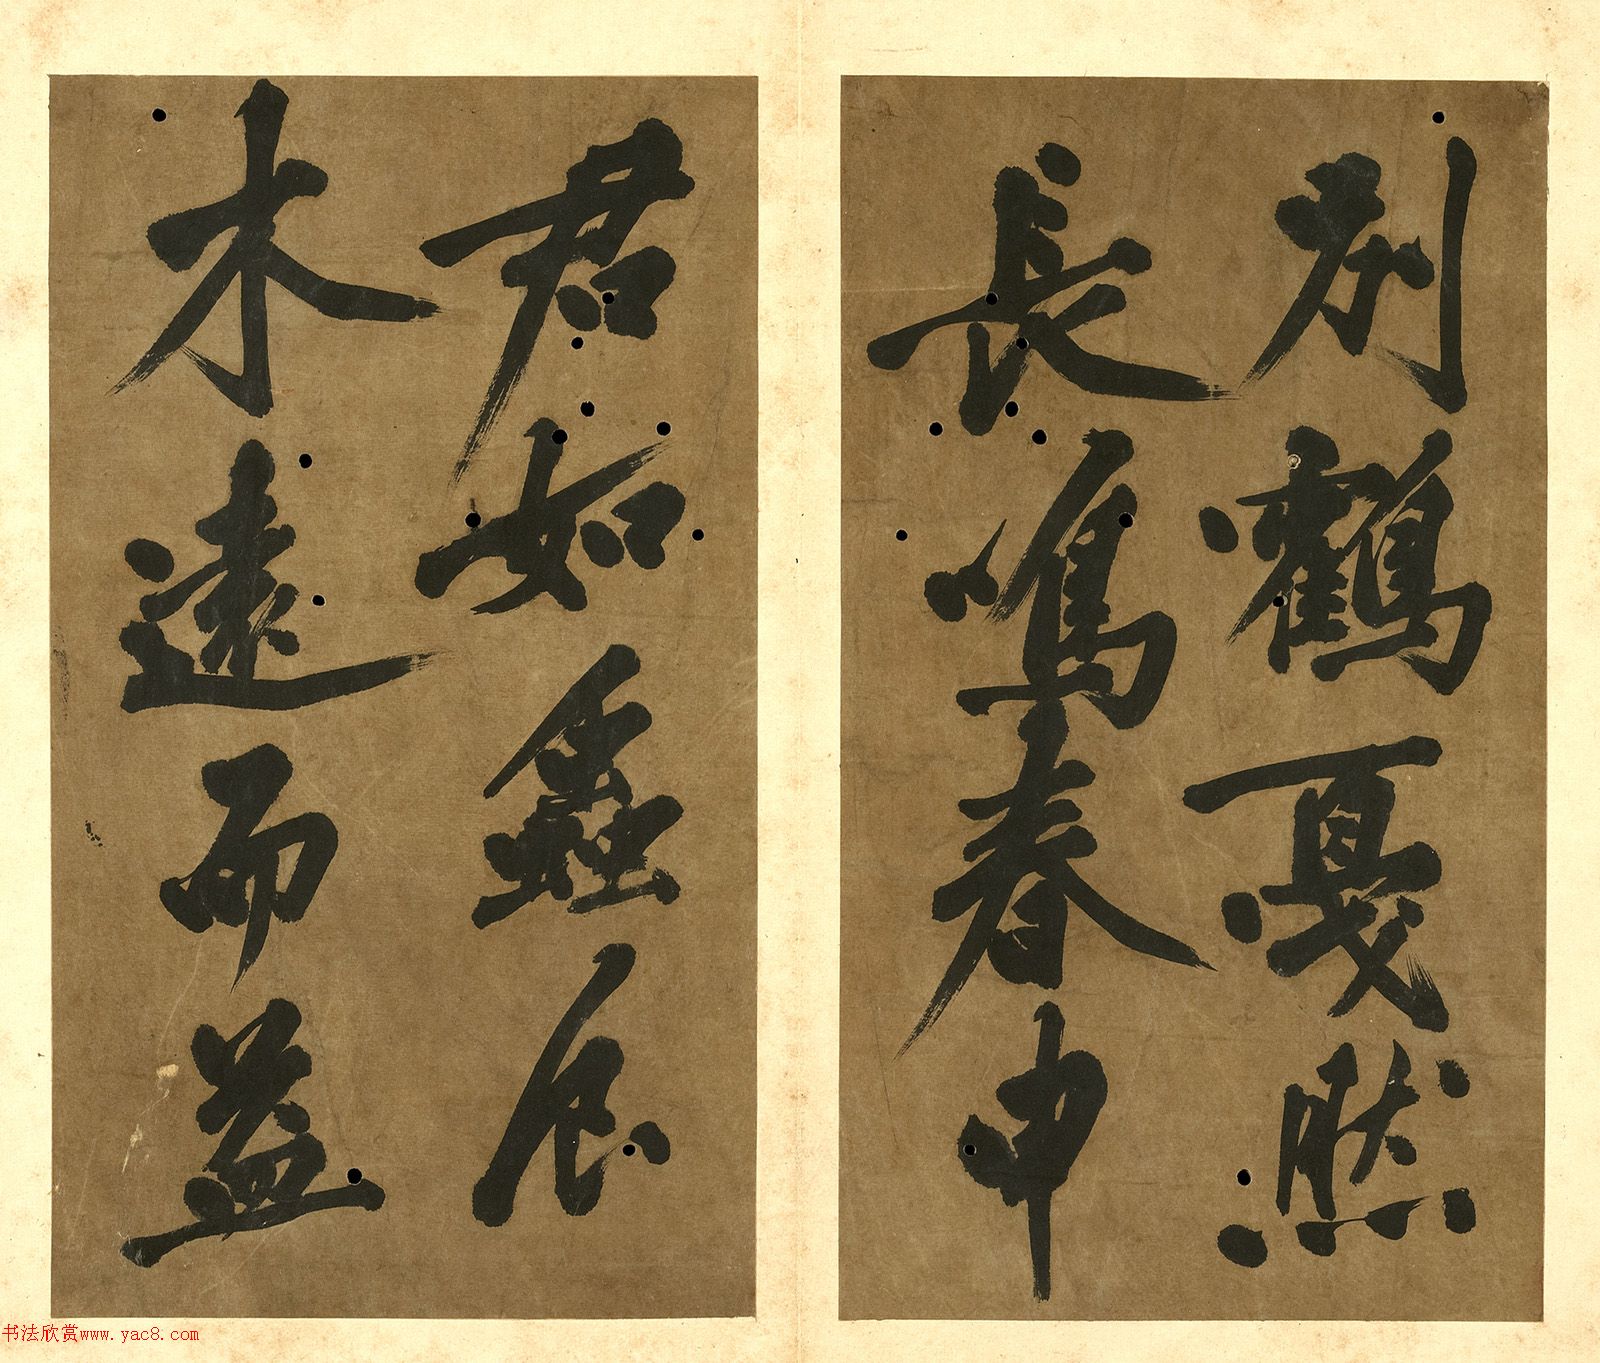 别鶴戛然
長鳴春申
君如蟲食
木遠而益
书法欣赏www.yac8.com